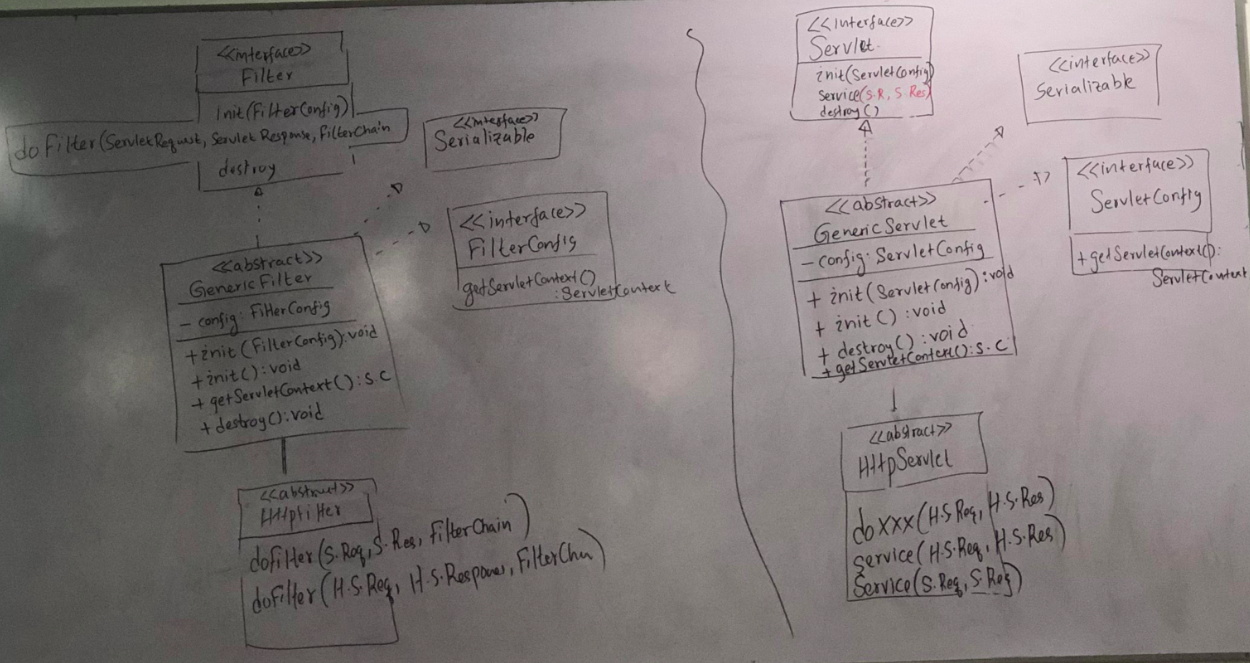 <<interface>>
Filter
init(FilterConfig)
doFilter(ServletRequest, Servlet Response, FilterChain)
destroy
<<interface>>
Serializable
<<interface>>
FilterConfig
getServletContext()
:ServletContext
<<abstract>>
GenericFilter
- config: FilterConfig
+init(FilterConfig):void
+init():void
+ getServletContext():S.C
+ destroy():void
<<abstract>>
HttpFilter
dofilter(S.Req,S.Res, FilterChain)
doFilter(H.S.Req, H.S.Response, FilterChain)
<<interface>>
Servlet
init(ServletConfig)
service(S.R, S.Res)
destroy()
<<interface>>
Serializable
<<interface>>
ServletConfig
+getServletContext():
ServletContext
<<abstract>>
GenericServlet
- config: ServletConfig
+ init(ServletConfig):void
+ init():void
+ destroy():void
+ getServletContext():S.C
<<abstract>>
HttpServlet
doxxx(H.S.Req, H.S.Res)
service(H.S.Req, H.S.Res)
Service(S.Req, S.Res)